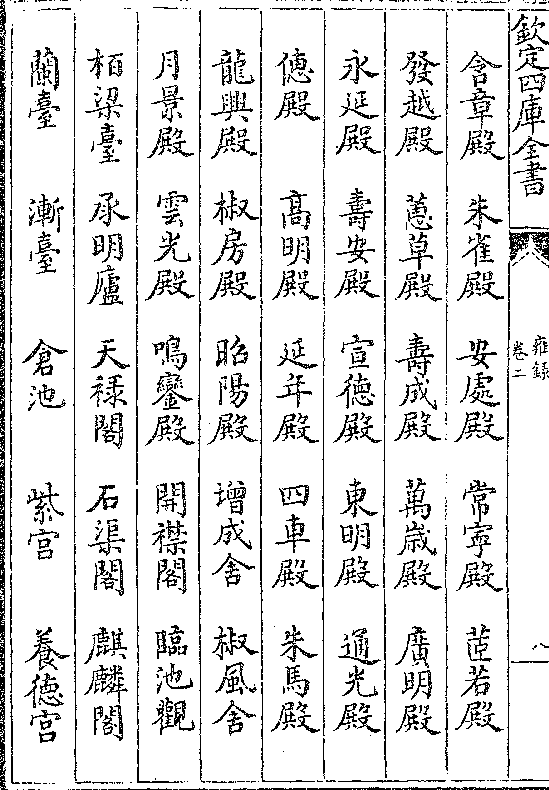 欽定四庫全書
雍錄
卷二
八
含章殿 朱雀殿 安處殿 常寧殿 茞若殿
發越殿 蕙草殿 壽成殿 萬歲殿 廣明殿
永延殿 壽安殿 宣德殿 東明殿 通光殿
德殿 高明殿 延年殿 四車殿 朱馬殿
龍興殿 椒房殿 昭陽殿 增成舍 椒風舍
月景殿 雲光殿 鳴鑾殿 開襟閣 臨池觀
栢梁臺 承明廬 天祿閣 石渠閣 麒麟閣
蘭臺 漸臺 倉池 紫宮 養德宮